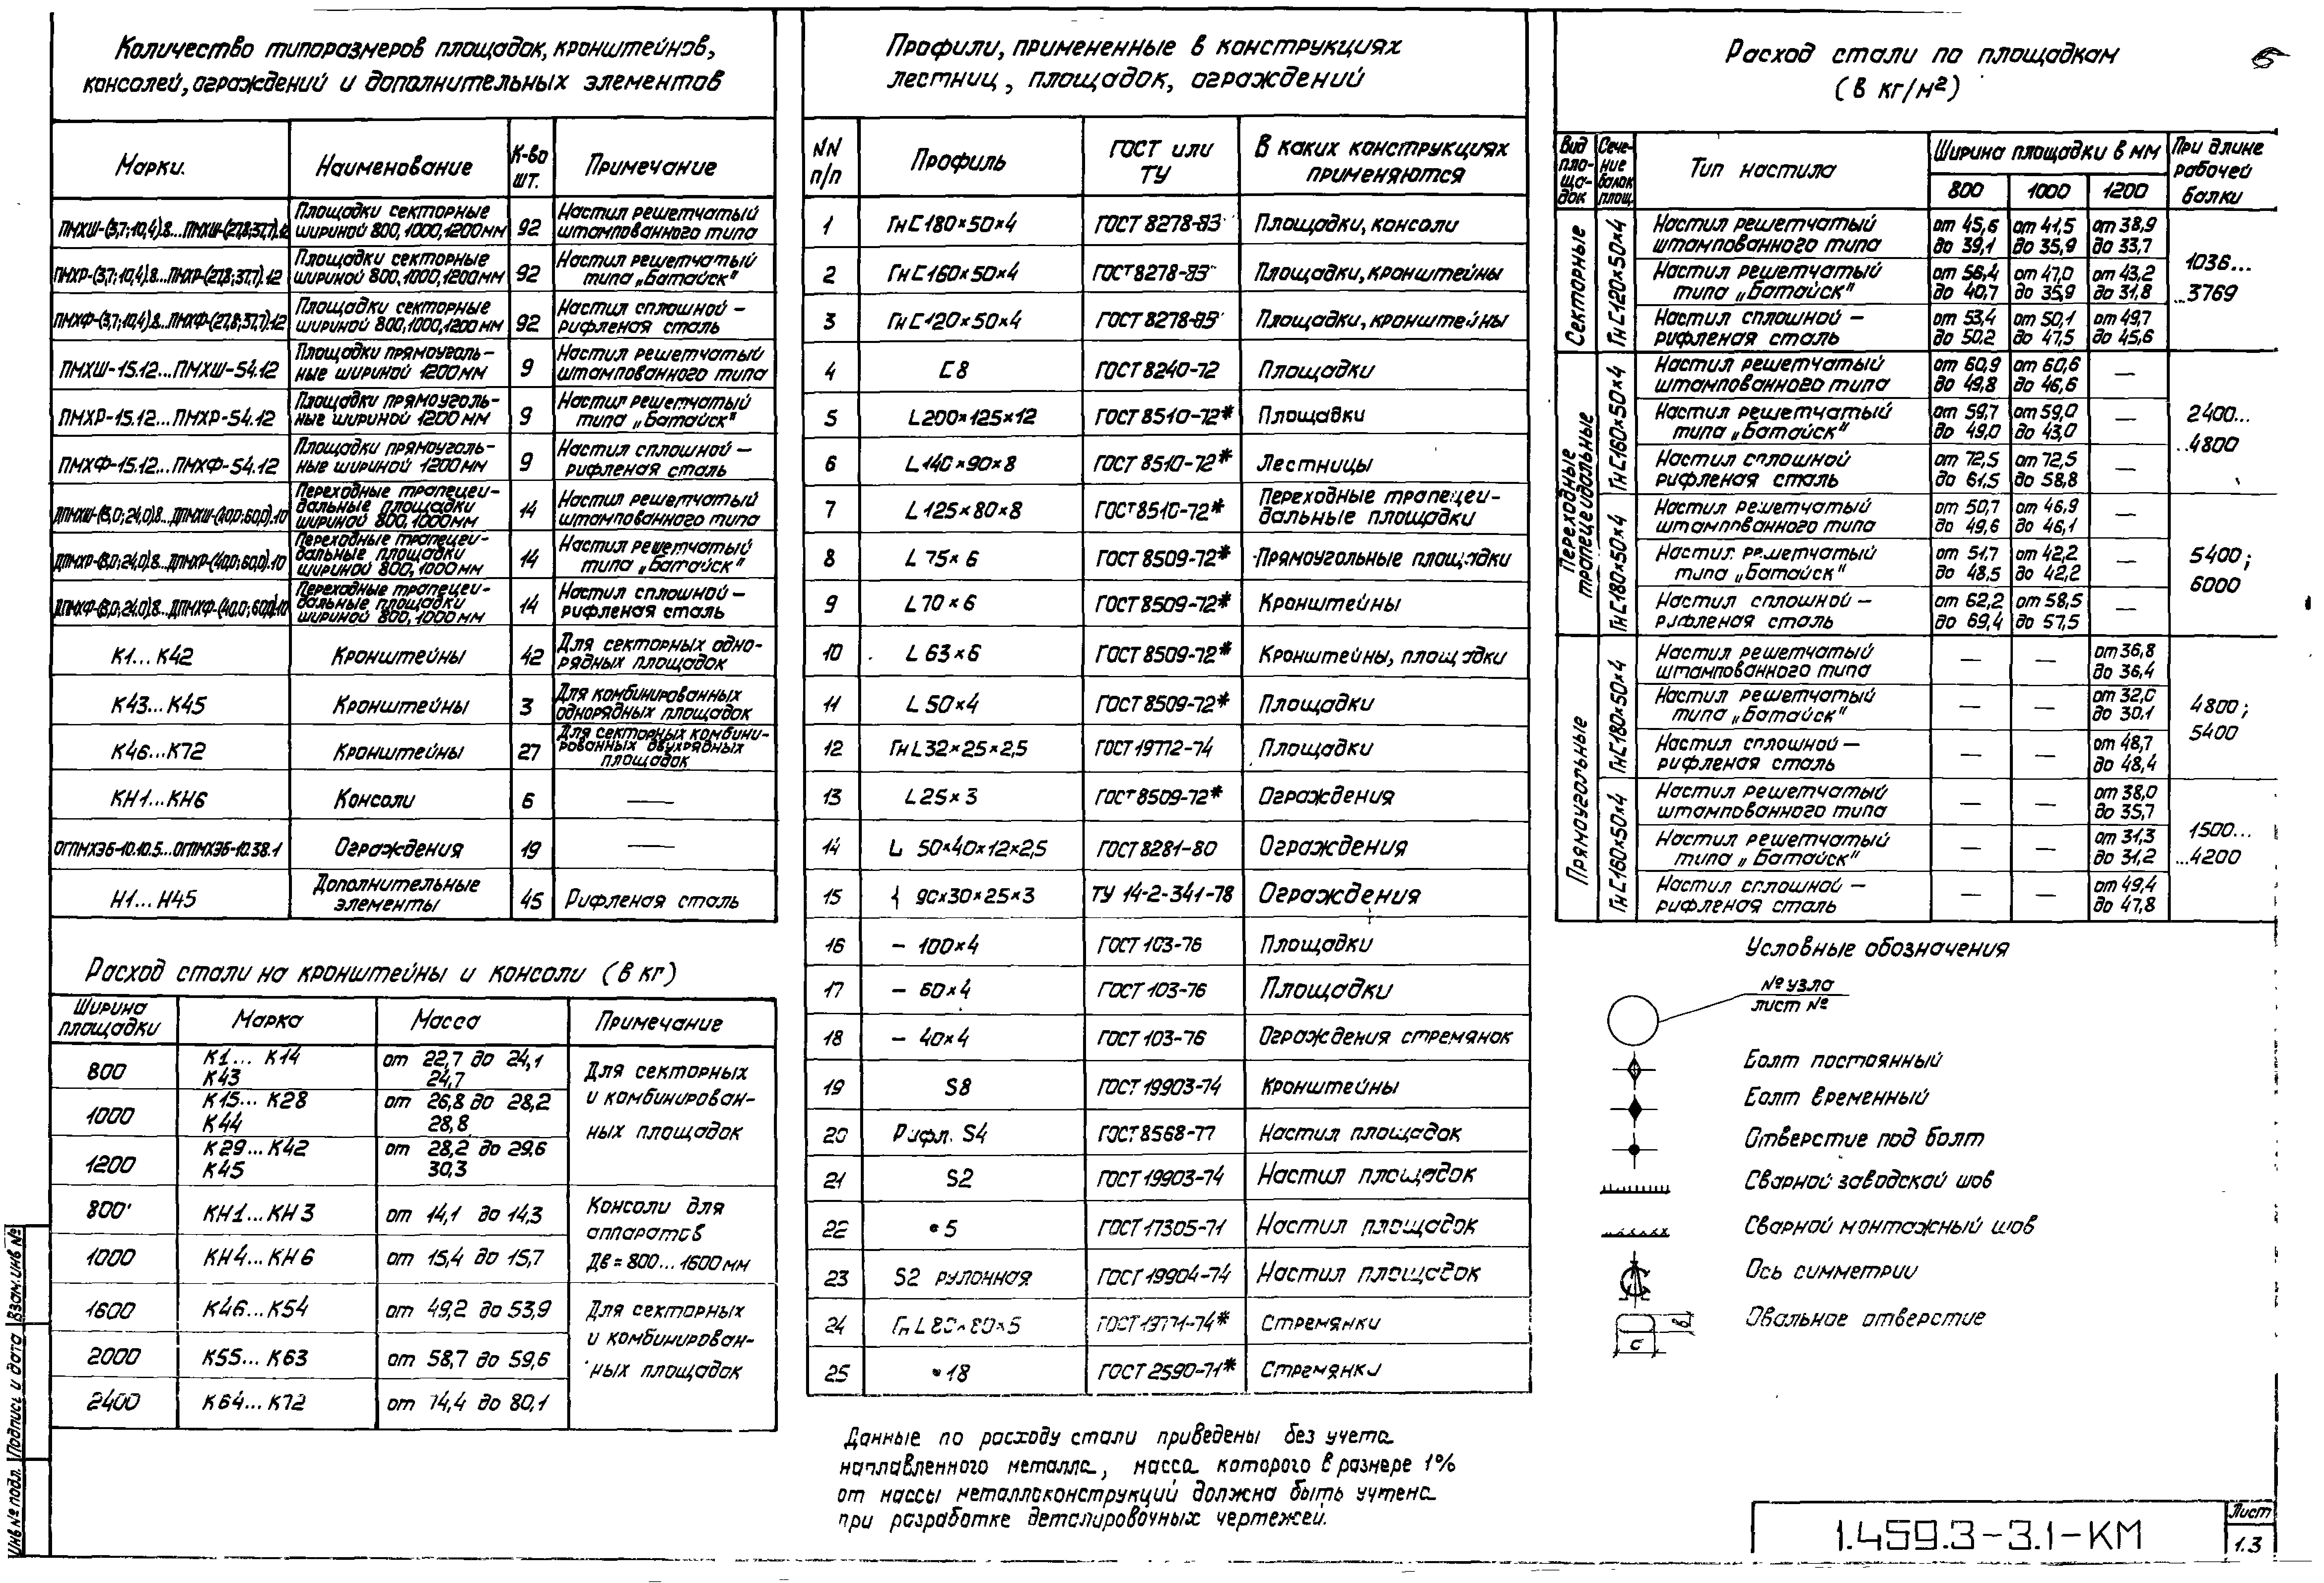 Количество типоразмеров площадок, кронштейнов,
консолей, ограждений и дополнительных элементов
Марки. Наименование К-во шт. Примечание
ПМХШ-(3,7;10,4).8...ПМХШ-(27,8;37,7).12 Площадки секторные шириной 800,1000,1200мм 92 Настил решетчатый штампованного типа
ПМХР-(3,7;10,4).8...ПМХР-(27,8;37,7).12 Площадки секторные шириной 800,1000,1200мм 92 Настил решетчатый типа „Батайск"
ПМХФ-(3,7;10,4).8...ПМХФ-(27,8;37,7).12 Площадки секторные шириной 800,1000,1200мм 92 Настил сплошной – рифленая сталь
ПМХШ-15.12...ПМХШ-54.12 Площадки прямоугольные шириной 1200мм 9 Настил решетчатый штампованного типа
ПМХР-15.12...ПМХР-54.12 Площадки прямоугольные шириной 1200мм 9 Настил решетчатый типа „Батайск"
ПМХФ-15.12...ПМХФ-54.12 Площадки прямоугольные шириной 1200мм 9 Настил сплошной – рифленая сталь
ДПМХШ-(8,0;24,0).8...ДПМХШ-(40,0;60,0).10 Переходные трапецеидальные площадки шириной 800,1000мм 14 Настил решетчатый штампованного типа
ДПМХР-(8,0;24,0).8...ДПМХР-(40,0;60,0).10 Переходные трапецеидальные площадки шириной 800,1000мм 14 Настил решетчатый типа „Батайск"
ДПМХФ-(8,0;24,0).8...ДПМХФ-(40,0;60,0).10 Переходные трапецеидальные площадки шириной 800,1000мм 14 Настил сплошной – рифленая сталь
К1...К42 Кронштейны 42 Для секторных однорядных площадок
К43...К45 Кронштейны 3 Для комбинированных однорядных площадок
К46...К72 Кронштейны 27 Для секторных комбинированных двухрядных площадок
КН1...КН6 Консоли 6 —
ОГПМХЭБ-10.10.5...ОГПМХЭБ-10.38.1 Ограждения 19 —
Н1...Н45 Дополнительные элементы 45 Рифленая сталь
Расход стали на кронштейны и консоли (в кг)
Ширина площадки Марка Масса Примечание
800 К1...К14 от 22,7 до 24,1
К43 24,7
1000 К15...К28 от 26,8 до 28,2
К44 28,8
1200 К29...К42 от 28,2 до 29,6
К45 30,3
Для секторных
и комбинирован-
ных площадок
800 КН1...КН3 от 14,1 до 14,3
1000 КН4...КН6 от 15,4 до 15,7
Консоли для
аппаратов
Дв=800...1600мм
1600 К46...К54 от 49,2 до 53,9
2000 К55...К63 от 58,7 до 59,6
2400 К64...К72 от 74,4 до 80,1
Для секторных
и комбинирован-
ных площадок
Профили, примененные в конструкциях
лестниц, площадок, ограждений
NN п/п Профиль ГОСТ или ТУ В каких конструкциях применяются
1 Гн[180×50×4 ГОСТ 8278-83 Площадки, консоли
2 Гн[160×50×4 ГОСТ 8278-83 Площадки, кронштейны
3 Гн[120×50×4 ГОСТ 8278-83 Площадки, кронштейны
4 [8 ГОСТ 8240-72 Площадки
5 L200×125×12 ГОСТ 8510-72* Площадки
6 L140×90×8 ГОСТ 8510-72* Лестницы
7 L125×80×8 ГОСТ 8510-72* Переходные трапецеидальные площадки
8 L75×6 ГОСТ 8509-72* Прямоугольные площадки
9 L70×6 ГОСТ 8509-72* Кронштейны
10 L63×6 ГОСТ 8509-72* Кронштейны, площадки
11 L50×4 ГОСТ 8509-72* Площадки
12 ГнL32×25×2,5 ГОСТ 19772-74 Площадки
13 L25×3 ГОСТ 8509-72* Ограждения
14 50×40×12×2,5 ГОСТ 8281-80 Ограждения
15 90×30×25×3 ТУ 14-2-341-78 Ограждения
16 – 100×4 ГОСТ 103-76 Площадки
17 – 60×4 ГОСТ 103-76 Площадки
18 – 40×4 ГОСТ 103-76 Ограждения стремянок
19 S8 ГОСТ 19903-74 Кронштейны
20 Рифл. S4 ГОСТ 8568-77 Настил площадок
21 S2 ГОСТ 19903-74 Настил площадок
22 •5 ГОСТ 17305-71 Настил площадок
23 S2 рулонная ГОСТ 19904-74 Настил площадок
24 ГнL80×80×5 ГОСТ 19771-74* Стремянки
25 •18 ГОСТ 2590-71* Стремянки
Данные по расходу стали приведены без учета
наплавленного металла, масса которого в размере 1%
от массы металлоконструкций должна быть учтена
при разработке деталировочных чертежей.
Расход стали по площадкам
(в кг/м²)
Вид площадок Сечение балок площ. Тип настила Ширина площадки в мм 800 1000 1200 При длине рабочей балки
Секторные Гн[120×50×4 1036... ...3769
Настил решетчатый штампованного типа от 45,6 до 39,1 от 41,5 до 35,9 от 38,9 до 33,7
Настил решетчатый типа „Батайск" от 56,4 до 40,7 от 47,0 до 35,9 от 43,2 до 31,8
Настил сплошной – рифленая сталь от 53,4 до 50,2 от 50,1 до 47,5 от 49,7 до 45,6
Переходные трапецеидальные Гн[160×50×4 2400... ...4800
Настил решетчатый штампованного типа от 60,9 до 49,8 от 60,6 до 46,6 —
Настил решетчатый типа „Батайск" от 59,7 до 49,0 от 59,0 до 43,0 —
Настил сплошной рифленая сталь от 72,5 до 61,5 от 72,5 до 58,8 —
Гн[180×50×4 5400; 6000
Настил решетчатый штампованного типа от 50,7 до 49,6 от 46,9 до 46,1 —
Настил решетчатый типа „Батайск" от 51,7 до 48,5 от 42,2 до 42,2 —
Настил сплошной – рифленая сталь от 62,2 до 69,4 от 58,5 до 57,5 —
Прямоугольные Гн[180×50×4 4800; 5400
Настил решетчатый штампованного типа — — от 36,8 до 36,4
Настил решетчатый типа „Батайск" — — от 32,0 до 30,1
Настил сплошной – рифленая сталь — — от 48,7 до 48,4
Гн[160×50×4 1500... ...4200
Настил решетчатый штампованного типа — — от 38,0 до 35,7
Настил решетчатый типа „Батайск" — — от 31,3 до 31,2
Настил сплошной – рифленая сталь — — от 49,4 до 47,8
Условные обозначения
№ узла
лист №
Болт постоянный
Болт временный
Отверстие под болт
Сварной заводской шов
Сварной монтажный шов
Ось симметрии
Овальное отверстие
1.459.3-3.1-КМ
Лист
1.3
Инв № подл. Подпись и дата Взам. инв №